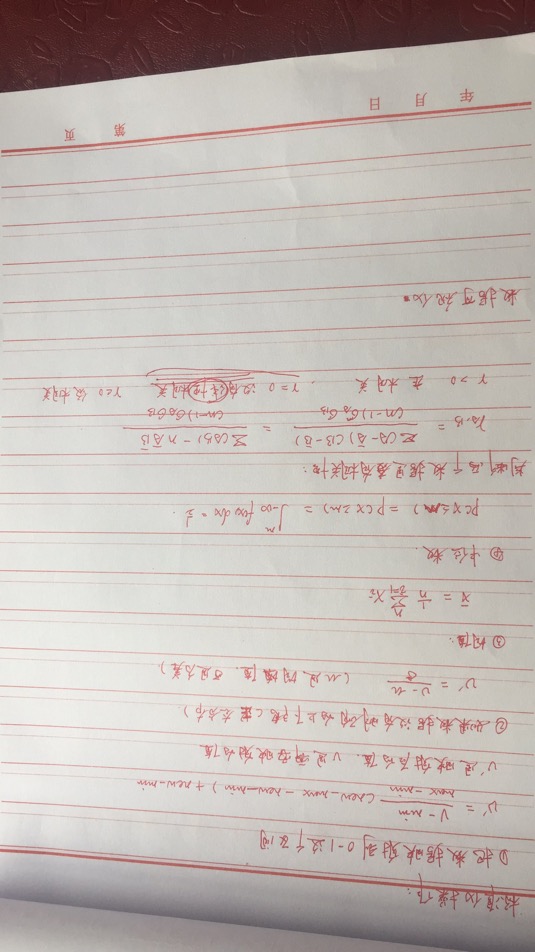 标准化操作:
① 把数据映射到 0-1这个区间
v' = \frac{v - min}{max - min} (new-max - new-min) + new-min
v'是映射后的值. v是需要映射的值
② 如果数据没有明确的上下限 (正态分布)
v' = \frac{v - u}{σ} (u是均值. σ是方差)
③ 均值:
x̄ = \frac{1}{n} \sum_{i=1}^{n} x_i
④ 中位数.
P(X≤m) = P(X≥m) = ∫_{-∞}^{m} f(x) dx = ½.
判断两个数据是否有相关性:
r_{A·B} = \frac{Σ(A-Ā)(B-B̄)}{(n-1)σ_A σ_B} = \frac{Σ(AB) - nĀB̄}{(n-1)σ_A σ_B}
r>0 正相关 . r=0 没有线性相关 r<0 负相关
数据可视化.
年 月 日
第 页